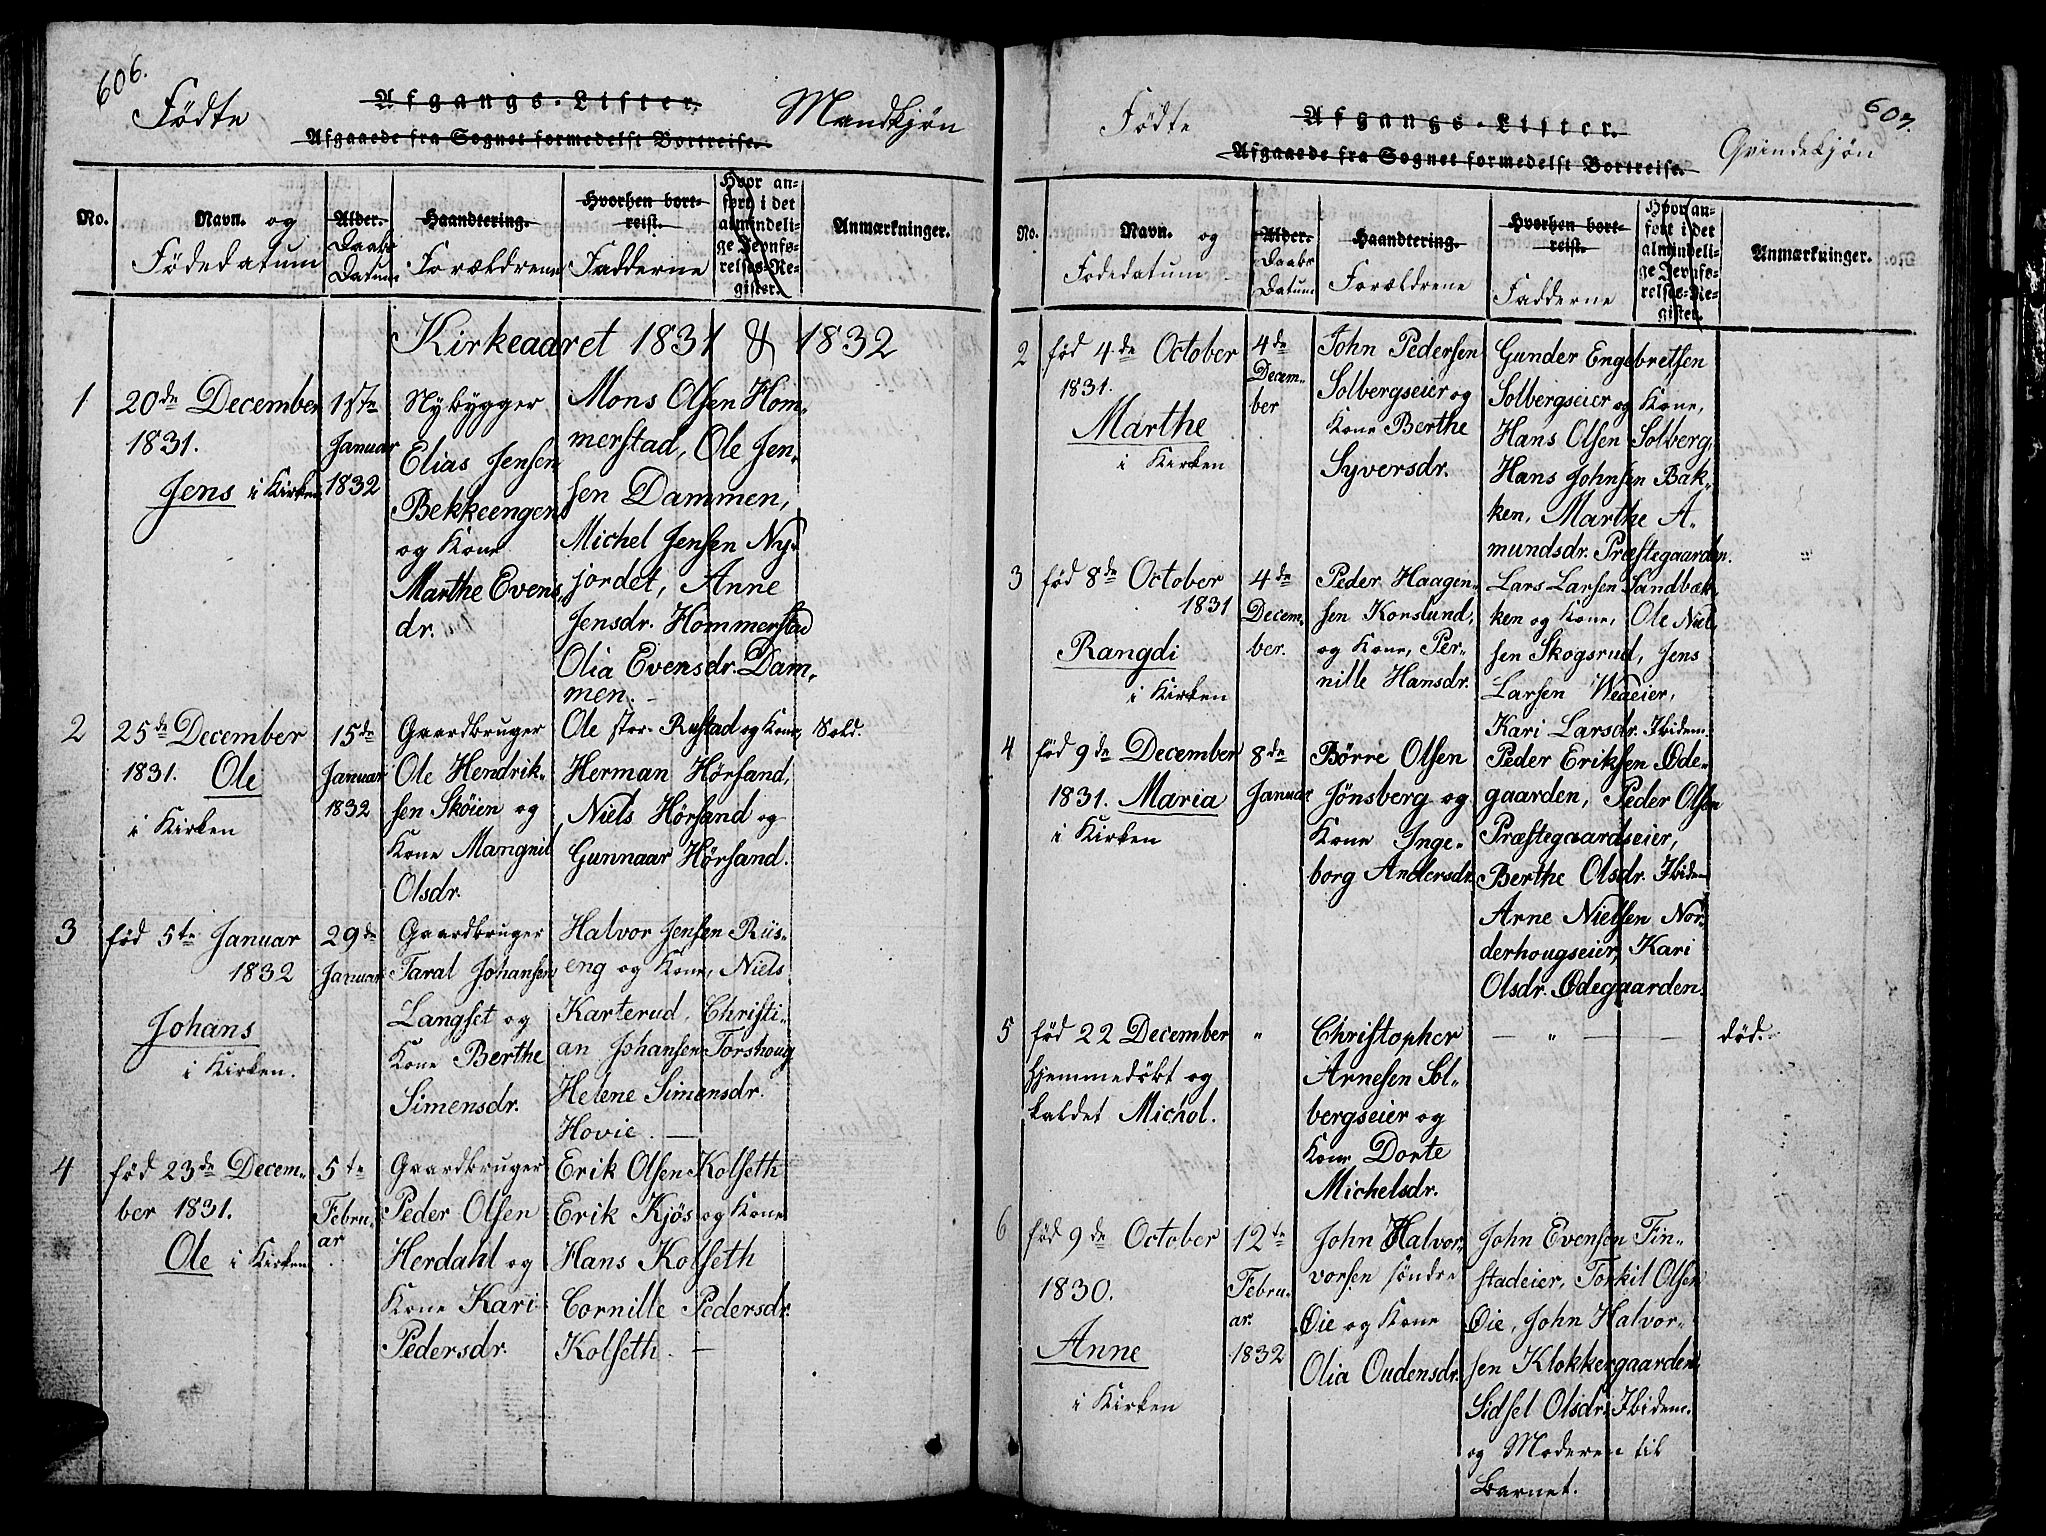 606.
Fødte
Afgangs-Lister.
Mandkjøn
Afgaaede fra Sognet formedelst Bortreise.
No.
Navn. og
Fødedatum
Alder.
Daabs
Datum
Haandtering.
Forældrene
Hvorhen bort-
reist.
Fadderne
Hvor an-
ført i det
almindeli-
ge Jevnfø-
relses-Re-
gister.
Anmærkninger.
Kirkeaaret 1831 & 1832
1
20de December
1831.
Jens i Kirken
1ste
Januar
1832
Nybygger
Elias Jensen
Bekkeengen
og Kone
Marthe Evens
dr.
Mons Olsen Hom-
merstad, Ole Jen-
sen Dammen,
Michel Jensen Ny-
jordet, Anne
Jensdr. Hommerstad
Olia Evensdr. Dam-
men.
2
25de December
1831. Ole
i Kirken
15de
Januar
1832
Gaardbruger
Ole Hendrik-
sen Skøien og
Kone Mangnil
Olsdr.
Ole stor-Rustad og Kone,
Herman Hørsand,
Niels Hørsand og
Gunnaar Hørsand.
Sold.
3
fød 5te Januar
1832
Johans
i Kirken.
29de
Januar
Gaardbruger
Taral Johansen
Langset og
Kone Berthe
Simensdr.
Halvor Jensen Riis-
eng og Kone, Niels
Karterud, Christi-
an Johansen Torshoug
Helene Simensdr.
Hovie.
4
fød 23de Decem-
ber 1831.
Ole i Kirken
5te
Febru-
ar
Gaardbruger
Peder Olsen
Herdahl og
Kone Kari
Pedersdr.
Erik Olsen Kolseth
Erik Kjøs og Kone
Hans Kolseth
Cornille Pedersdr.
Kolseth.
607.
Fødte
Afgangs-Lister.
Qvindekjøn
Afgaaede fra Sognet formedelst Bortreise.
No.
Navn. og
Fødedatum
Alder.
Daabs
Datum
Haandtering.
Forældrene
Hvorhen bort-
reist.
Fadderne
Hvor an-
ført i det
almindeli-
ge Jevnfø-
relses-Re-
gister.
Anmærkninger.
2
fød 4de October
1831.
Marthe
i Kirken
4de
Decem-
ber
John Pedersen
Solbergseier og
Kone Berthe
Syversdr.
Gunder Engebretsen
Solbergseier og Kone,
Hans Olsen Solberg,
Hans Johnsen Bak-
ken, Marthe A-
mundsdr. Præstegaarden.
3
fød 8de October
1831
Rangdi
i Kirken
4de
Decem-
ber.
Peder Haagen-
sen Korslund,
og Kone, Per-
nille Hansdr.
Lars Larsen Sandbæk-
ken og Kone, Ole Niel-
sen Skogsrud, Jens
Larsen Wedeier,
Kari Larsdr. Ibidem.
4
fød 9de December
1831. Maria
i Kirken
8de
Januar
Børre Olsen
Jønsberg og
Kone Inge-
borg Andersdr.
Peder Eriksen Øde-
gaarden, Peder Olsen
Præstegaardseier,
Berthe Olsdr. Ibidem
Arne Nielsen Nor-
derhougseier, Kari
Olsdr. Ødegaarden.
5
fød 22 December
hjemmedøbt og
kaldet Michol.
"
Christopher
Arnesen Sol-
bergseier og
Kone Dorte
Michelsdr.
— " — —
død.
6
fød 9de October
1830.
Anne
i Kirken
12te
Febru-
ar.
1832
John Halvor-
vorsen søndre
Øie og Kone
Olia Oudensdr.
John Evensen Fin-
stadeier, Torkil Olsen
Øie, John Halvor-
sen Klokkergaarden
Sidsel Olsdr. Ibidem.
og Moderen til
Barnet.